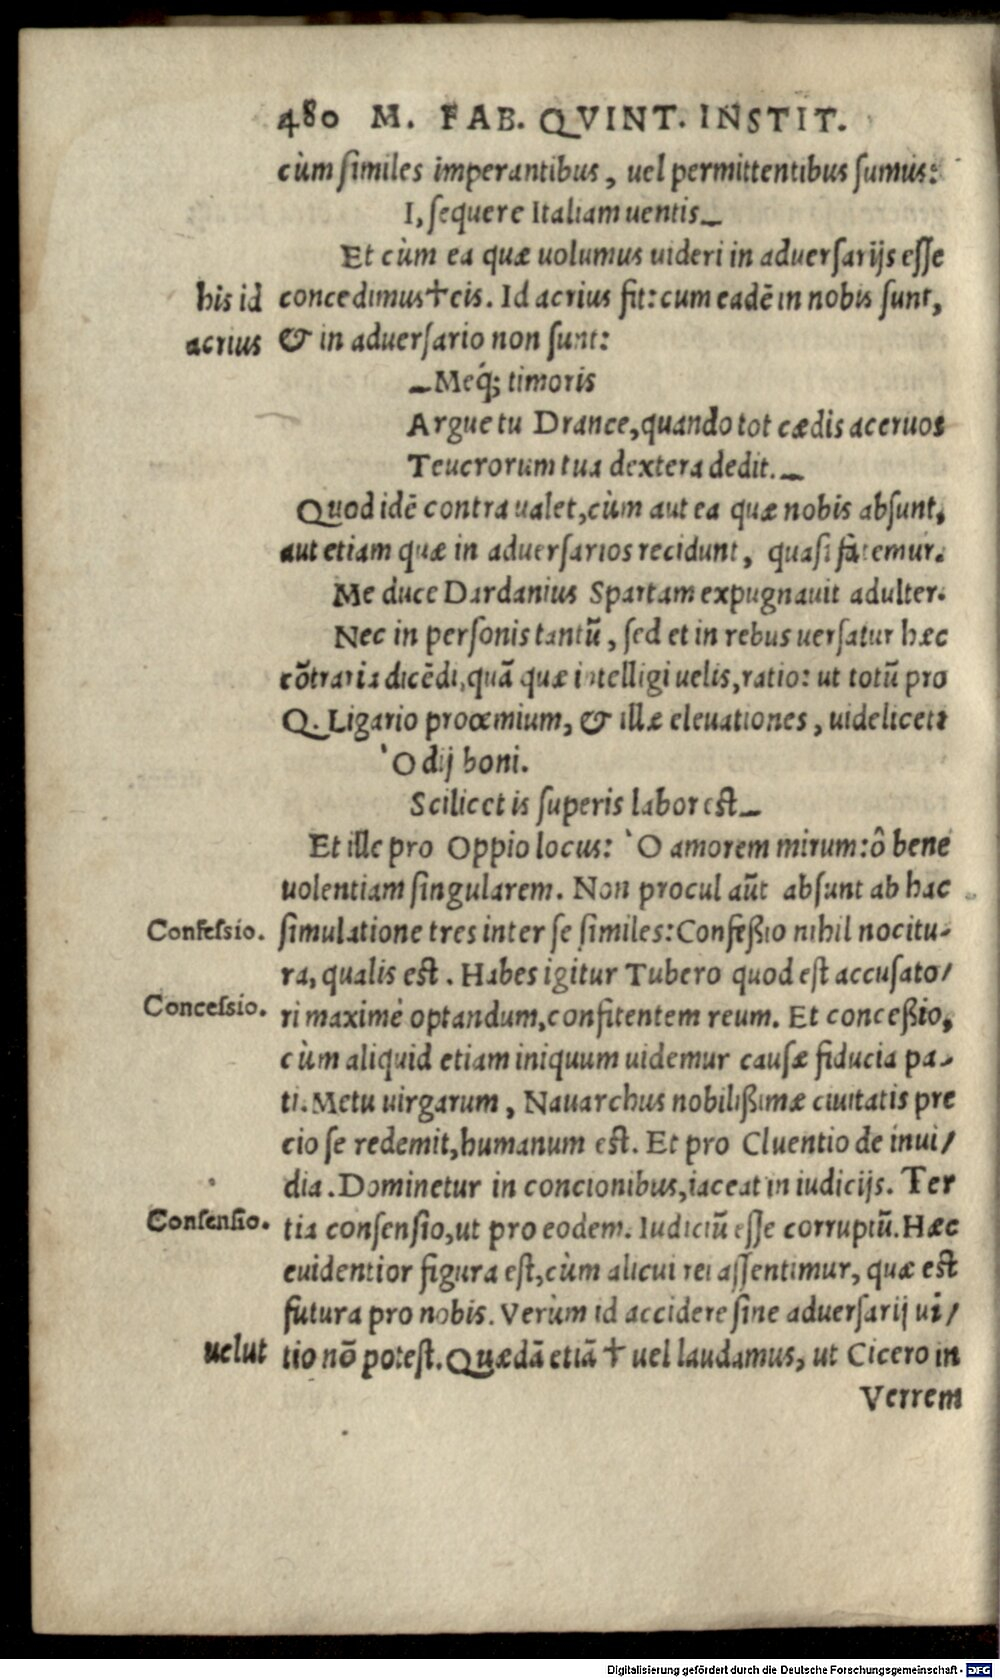 480 M. FAB. QVINT. INSTIT.
cùm ſimiles imperantibus, uel permittentibus ſumus:
I, ſequere Italiam uentis_
Et cùm ea quæ uolumus uideri in aduerſarijs eſſe
his id concedimus†eis. Id acrius fit: cum eadē in nobis ſunt,
acrius & in aduerſario non ſunt:
_Meq́; timoris
Argue tu Drance, quando tot cædis aceruos
Teucrorum tua dextera dedit._
Quod idē contra ualet, cùm aut ea quæ nobis abſunt,
aut etiam quæ in aduerſarios recidunt, quaſi fatemur.
Me duce Dardanius Spartam expugnauit adulter.
Nec in perſonis tantū, ſed et in rebus uerſatur hæc
cōtraria dicēdi, quā quæ intelligi uelis, ratio: ut totū pro
Q. Ligario proœmium, & illæ eleuationes, uidelicet:
`O dij boni.
Scilicet is ſuperis labor eſt_
Et ille pro Oppio locus: `O amorem mirum: ô bene
uolentiam ſingularem. Non procul aūt abſunt ab hac
Confeſsio. ſimulatione tres inter ſe ſimiles: Confeßio nihil nocitu-
ra, qualis eſt. Habes igitur Tubero quod eſt accuſato/
Conceſsio. ri maximè optandum, confitentem reum. Et conceßio,
cùm aliquid etiam iniquum uidemur cauſæ fiducia pa-
ti. Metu uirgarum, Nauarchus nobilißimæ ciuitatis pre
cio ſe redemit, humanum eſt. Et pro Cluentio de inui/
dia. Dominetur in concionibus, iaceat in iudicijs. Ter
Conſenſio. tia conſenſio, ut pro eodem. Iudiciū eſſe corruptū. Hæc
euidentior figura eſt, cùm alicui rei aſſentimur, quæ eſt
futura pro nobis. Verùm id accidere ſine aduerſarij ui/
uelut tio nō poteſt. Quædā etiā † uel laudamus, ut Cicero in
Verrem
Digitalisierung gefördert durch die Deutsche Forschungsgemeinschaft - DFG